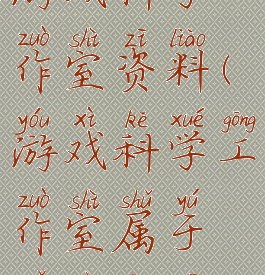 zuò shì zī liào
作室资料(
yóu xì kē xué gōng
游戏科学工
zuò shì shǔ yú
作室属于